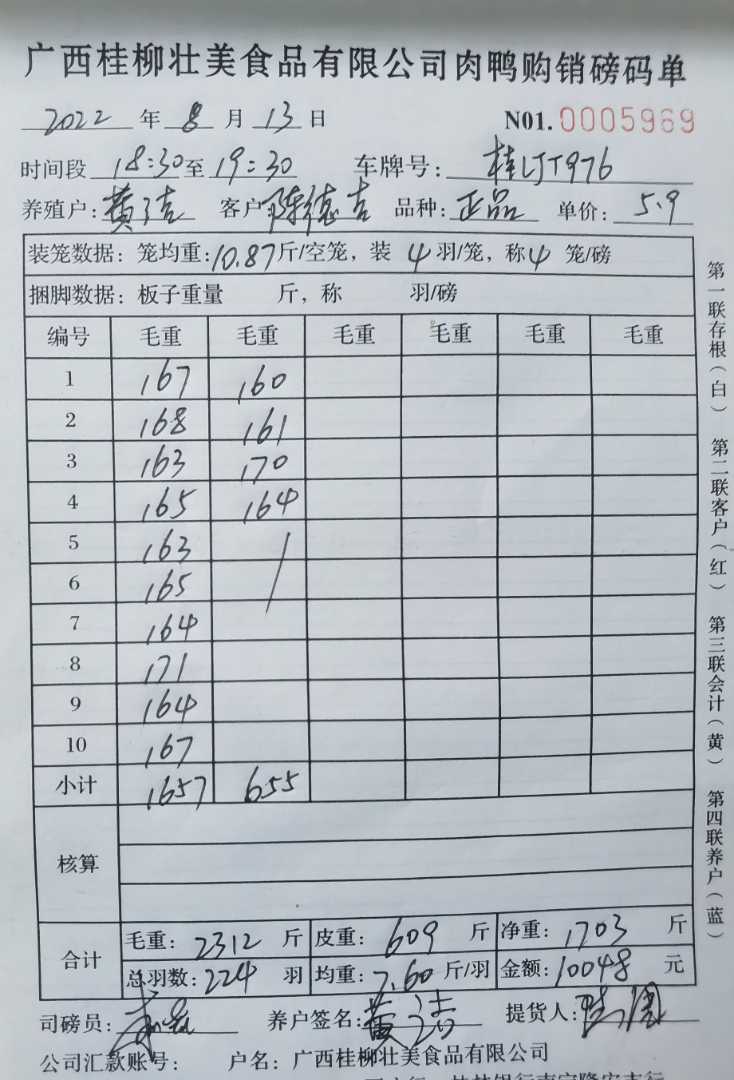 广西桂柳壮美食品有限公司肉鸭购销磅码单
2022 年 8 月 13 日 N01. 0005969
时间段 18:30 至 19:30 车牌号: 桂LJT976
养殖户: 黄 洁 客户 陈德吉 品种: 正品 单价: 5.9
装笼数据: 笼均重: 10.87 斤/空笼, 装 4 羽/笼, 称 4 笼/磅
捆脚数据: 板子重量 斤, 称 羽/磅
编号 毛重 毛重 毛重 毛重 毛重 毛重
1 167 160
2 168 161
3 163 170
4 165 164
5 163
6 165
7 164
8 171
9 164
10 167
小计 1657 655
核算
合计 毛重: 2312 斤 皮重: 609 斤 净重: 1703 斤
总羽数: 224 羽 均重: 7.60 斤/羽 金额: 10048 元
司磅员: 养户签名: 黄 洁 提货人:
公司汇款账号: 户名: 广西桂柳壮美食品有限公司
第一联存根(白) 第二联客户(红) 第三联会计(黄) 第四联养户(蓝)